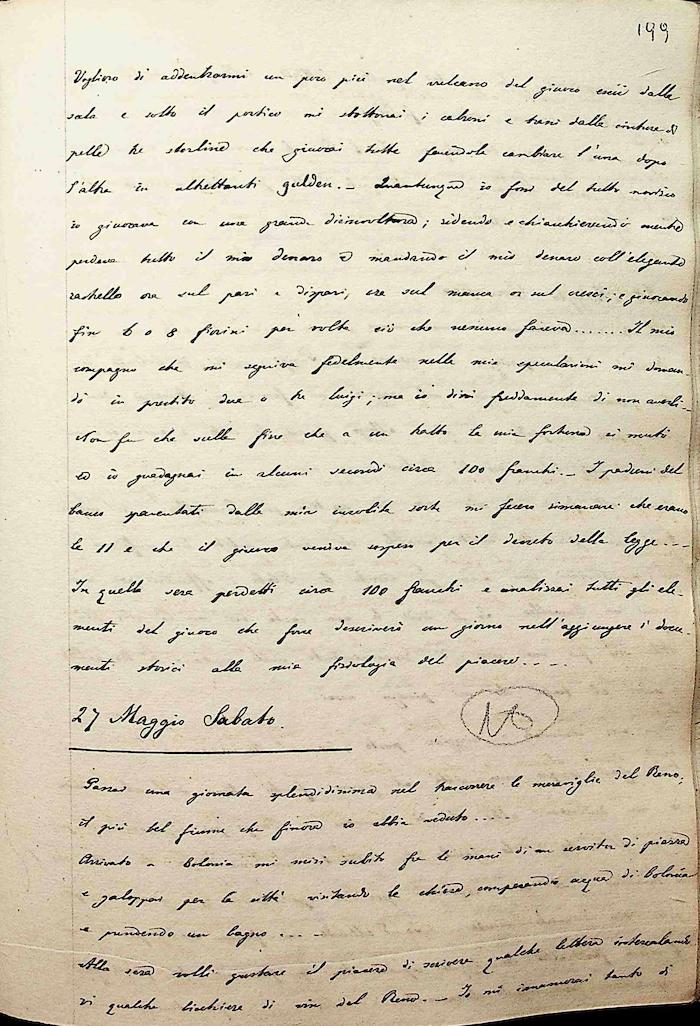 199
Voglioso di addentrarmi un poco più nel vulcano del giuoco escii dalla
sala e sotto il portico mi sbottonai i calzoni e trassi dalla cintura di
pelle tre sterline che giuocai tutte facendole cambiare l'una dopo
l'altra in altrettanti gulden. _ Quantunque io fossi del tutto novizio
io giuocava con una grande disinvoltura; ridendo e chiacchierando mentre
perdeva tutto il mio denaro e mandando il mio denaro coll'elegante
rastrello ora sul pari e dispari, ora sul manca or sul cresci; e giuocando
fin 6 o 8 fiorini per volta ciò che nessuno faceva....... Il mio
compagno che mi seguiva fedelmente nelle mie speculazioni mi doman-
dò in prestito due o tre luigi; ma io dissi freddamente di non averli _
Non fu che sulla fine che a un tratto la mia fortuna si mutò
ed io guadagnai in alcuni secondi circa 100 franchi. _ I padroni del
banco spaventati dalla mia insolita sorte mi fecero rimarcare che erano
le 11 e che il giuoco veniva sospeso per il decreto della legge....
In quella sera perdetti circa 100 franchi e analizzai tutti gli ele-
menti del giuoco che forse descriverò un giorno nell'aggiungere i docu-
menti storici alla mia fisiologia del piacere....
27 Maggio Sabato.
Passai una giornata splendidissima nel trascorrere le meraviglie del Reno;
il più bel fiume che finora io abbia veduto....
Arrivato a Colonia mi misi subito fra le mani di un servitor di piazza
e galoppai per la città visitando le chiese, comperando acqua di Colonia
e prendendo un bagno....
Alla sera volli gustare il piacere di scrivere qualche lettera intercalando
vi qualche bicchiere di vin del Reno. _ Io mi innamorai tanto di